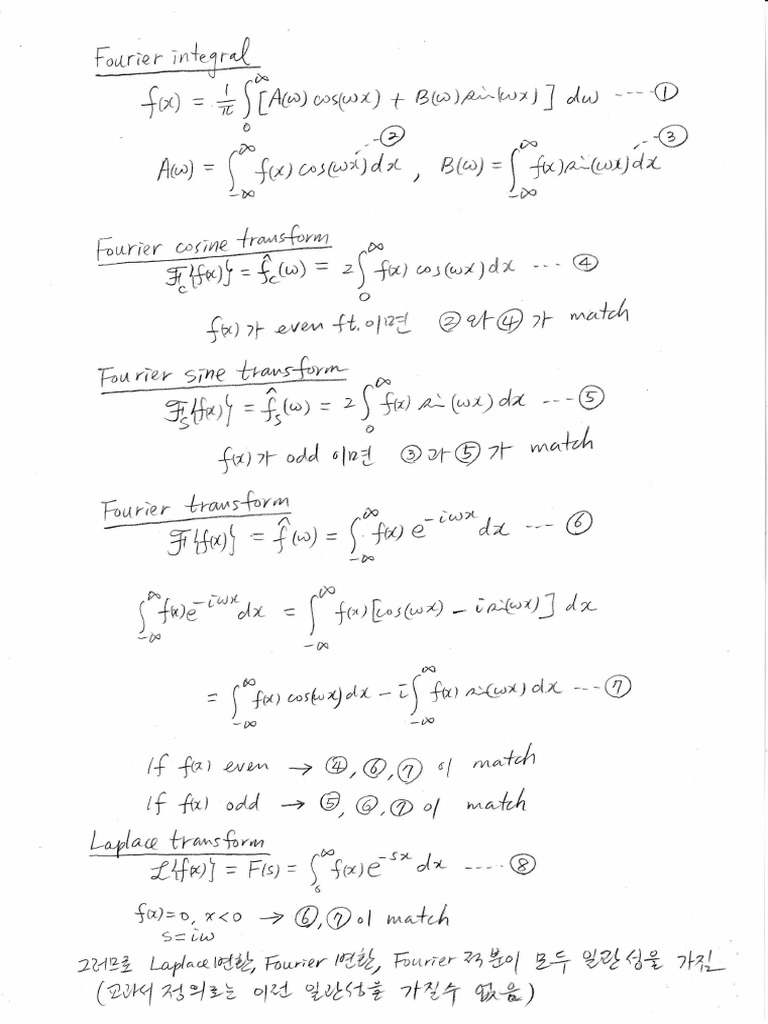 Fourier integral
f(x) = 1/π ∫₀^∞ [A(ω) cos(ωx) + B(ω) sin(ωx)] dω ---- ①
A(ω) = ∫_{-∞}^{∞} f(x) cos(ωx) dx --②, B(ω) = ∫_{-∞}^{∞} f(x) sin(ωx) dx --③
Fourier cosine transform
ℱ_c{f(x)} = f̂_c(ω) = 2∫₀^∞ f(x) cos(ωx) dx --- ④
f(x)가 even ft. 이면 ②와 ④가 match
Fourier sine transform
ℱ_s{f(x)} = f̂_s(ω) = 2∫₀^∞ f(x) sin(ωx) dx --- ⑤
f(x)가 odd 이면 ③과 ⑤가 match
Fourier transform
ℱ{f(x)} = f̂(ω) = ∫_{-∞}^{∞} f(x) e^{-iωx} dx --- ⑥
∫_{-∞}^{∞} f(x) e^{-iωx} dx = ∫_{-∞}^{∞} f(x) [cos(ωx) - i sin(ωx)] dx
= ∫_{-∞}^{∞} f(x) cos(ωx) dx - i∫_{-∞}^{∞} f(x) sin(ωx) dx ---- ⑦
If f(x) even → ④, ⑥, ⑦ 이 match
If f(x) odd → ⑤, ⑥, ⑦ 이 match
Laplace transform
ℒ{f(x)} = F(s) = ∫₀^∞ f(x) e^{-sx} dx ----- ⑧
f(x)=0, x<0 → ⑥, ⑦ 이 match
s=iω
그러므로 Laplace 변환, Fourier 변환, Fourier 적분이 모두 일관성을 가짐
(교과서 정의로는 이런 일관성을 가질수 없음)